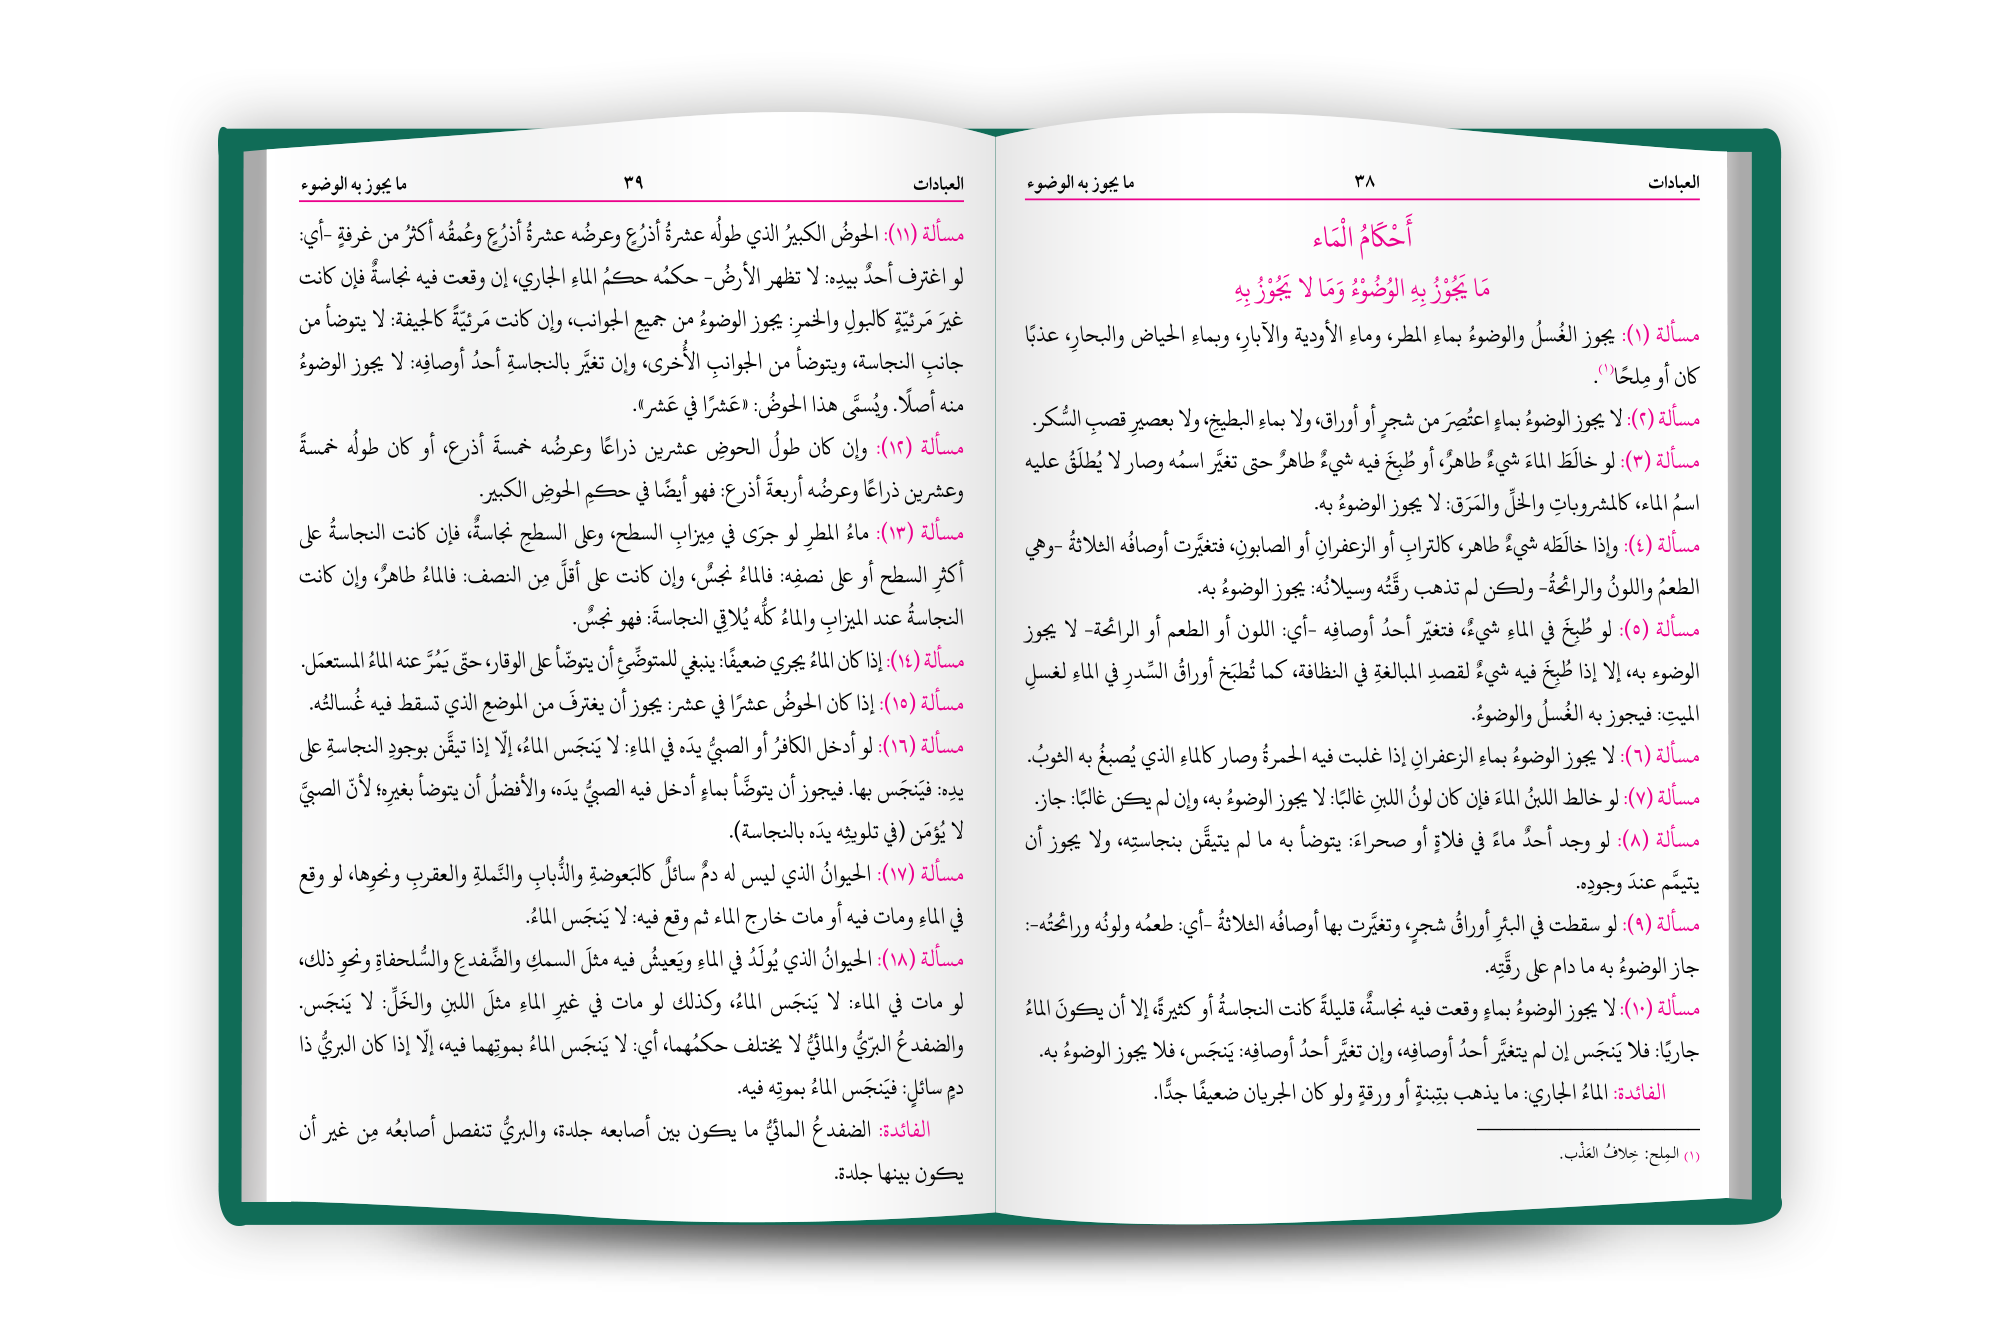 العبادات ٣٨ ما يجوز به الوضوء
أَحْكَامُ الْمَاء
مَا يَجُوْزُ بِهِ الوُضُوْءُ وَمَا لا يَجُوْزُ بِهِ
مسألة (١): يجوز الغُسلُ والوضوءُ بماءِ المطر، وماءِ الأودية والآبارِ، وبماءِ الحياض والبحارِ، عذبًا
كان أو مِلحًا(١).
مسألة (٢): لا يجوز الوضوءُ بماءٍ اعتُصِرَ من شجرٍ أو أوراق، ولا بماءِ البطيخِ، ولا بعصيرِ قصبِ السُّكر.
مسألة (٣): لو خالَطَ الماءَ شيءٌ طاهرٌ، أو طُبِخَ فيه شيءٌ طاهرٌ حتى تغيَّر اسمُه وصار لا يُطلَقُ عليه
اسمُ الماء، كالمشروباتِ والخلِّ والمَرَق: لا يجوز الوضوءُ به.
مسألة (٤): وإذا خالَطَه شيءٌ طاهر، كالترابِ أو الزعفرانِ أو الصابونِ، فتغيَّرت أوصافُه الثلاثةُ -وهي
الطعمُ واللونُ والرائحةُ- ولكن لم تذهب رقَّتُه وسيلانُه: يجوز الوضوءُ به.
مسألة (٥): لو طُبِخَ في الماءِ شيءٌ، فتغيّر أحدُ أوصافِه -أي: اللون أو الطعم أو الرائحة- لا يجوز
الوضوء به، إلا إذا طُبِخَ فيه شيءٌ لقصدِ المبالغةِ في النظافة، كما تُطبَخ أوراقُ السِّدرِ في الماءِ لغسلِ
الميتِ: فيجوز به الغُسلُ والوضوءُ.
مسألة (٦): لا يجوز الوضوءُ بماءِ الزعفرانِ إذا غلبت فيه الحمرةُ وصار كالماءِ الذي يُصبغُ به الثوبُ.
مسألة (٧): لو خالط اللبنُ الماءَ فإن كان لونُ اللبنِ غالبًا: لا يجوز الوضوءُ به، وإن لم يكن غالبًا: جاز.
مسألة (٨): لو وجد أحدٌ ماءً في فلاةٍ أو صحراءَ: يتوضأ به ما لم يتيقَّن بنجاستِه، ولا يجوز أن
يتيمَّم عندَ وجودِه.
مسألة (٩): لو سقطت في البئرِ أوراقُ شجرٍ، وتغيَّرت بها أوصافُه الثلاثةُ -أي: طعمُه ولونُه ورائحتُه-:
جاز الوضوءُ به ما دام على رقَّتِه.
مسألة (١٠): لا يجوز الوضوءُ بماءٍ وقعت فيه نجاسةٌ، قليلةً كانت النجاسةُ أو كثيرةً، إلا أن يكونَ الماءُ
جاريًا: فلا يَنجَس إن لم يتغيَّر أحدُ أوصافِه، وإن تغيَّر أحدُ أوصافِه: يَنجَس، فلا يجوز الوضوءُ به.
الفائدة: الماءُ الجاري: ما يذهب بتِبنةٍ أو ورقةٍ ولو كان الجريان ضعيفًا جدًّا.
(١) المِلح: خِلافُ العَذْب.
العبادات ٣٩ ما يجوز به الوضوء
مسألة (١١): الحوضُ الكبيرُ الذي طولُه عشرةُ أذرُعٍ وعرضُه عشرةُ أذرُعٍ وعُمقُه أكثرُ من غرفةٍ -أي:
لو اغترف أحدٌ بيدِه: لا تظهر الأرضُ- حكمُه حكمُ الماءِ الجاري، إن وقعت فيه نجاسةٌ فإن كانت
غيرَ مَرئيّةٍ كالبولِ والخمرِ: يجوز الوضوءُ من جميعِ الجوانب، وإن كانت مَرئيّةً كالجيفة: لا يتوضأ من
جانبِ النجاسة، ويتوضأ من الجوانبِ الأُخرى، وإن تغيَّر بالنجاسةِ أحدُ أوصافِه: لا يجوز الوضوءُ
منه أصلًا. ويُسمَّى هذا الحوضُ: «عَشرًا في عَشر».
مسألة (١٢): وإن كان طولُ الحوضِ عشرين ذراعًا وعرضُه خمسةَ أذرع، أو كان طولُه خمسةً
وعشرين ذراعًا وعرضُه أربعةَ أذرع: فهو أيضًا في حكمِ الحوضِ الكبير.
مسألة (١٣): ماءُ المطرِ لو جرَى في مِيزابِ السطح، وعلى السطحِ نجاسةٌ، فإن كانت النجاسةُ على
أكثرِ السطح أو على نصفِه: فالماءُ نجسٌ، وإن كانت على أقلَّ مِن النصف: فالماءُ طاهرٌ، وإن كانت
النجاسةُ عند الميزابِ والماءُ كلُّه يُلاقِي النجاسةَ: فهو نجسٌ.
مسألة (١٤): إذا كان الماءُ يجري ضعيفًا: ينبغي للمتوضِّئِ أن يتوضّأ على الوقار، حتّى يَمُرَّ عنه الماءُ المستعمَل.
مسألة (١٥): إذا كان الحوضُ عشرًا في عشر: يجوز أن يغترفَ من الموضعِ الذي تسقط فيه غُسالتُه.
مسألة (١٦): لو أدخل الكافرُ أو الصبيُّ يدَه في الماءِ: لا يَنجَس الماءُ، إلّا إذا تيقَّن بوجودِ النجاسةِ على
يدِه: فيَنجَس بها. فيجوز أن يتوضَّأ بماءٍ أدخل فيه الصبيُّ يدَه، والأفضلُ أن يتوضأ بغيرِه؛ لأنّ الصبيَّ
لا يُؤمَن (في تلويثِه يدَه بالنجاسة).
مسألة (١٧): الحيوانُ الذي ليس له دمٌ سائلٌ كالبَعوضةِ والذُّبابِ والنَّملةِ والعقربِ ونحوِها، لو وقع
في الماءِ ومات فيه أو مات خارج الماء ثم وقع فيه: لا يَنجَس الماءُ.
مسألة (١٨): الحيوانُ الذي يُولَدُ في الماءِ ويَعيشُ فيه مثلَ السمكِ والضِّفدعِ والسُّلحفاةِ ونحوِ ذلك،
لو مات في الماء: لا يَنجَس الماءُ، وكذلك لو مات في غيرِ الماءِ مثلَ اللبنِ والخَلِّ: لا يَنجَس.
والضفدعُ البرّيُّ والمائيُّ لا يختلف حكمُهما، أي: لا يَنجَس الماءُ بموتِهما فيه، إلّا إذا كان البريُّ ذا
دمٍ سائلٍ: فيَنجَس الماءُ بموتِه فيه.
الفائدة: الضفدعُ المائيُّ ما يكون بين أصابعه جلدة، والبريُّ تنفصل أصابعُه مِن غير أن
يكون بينها جلدة.